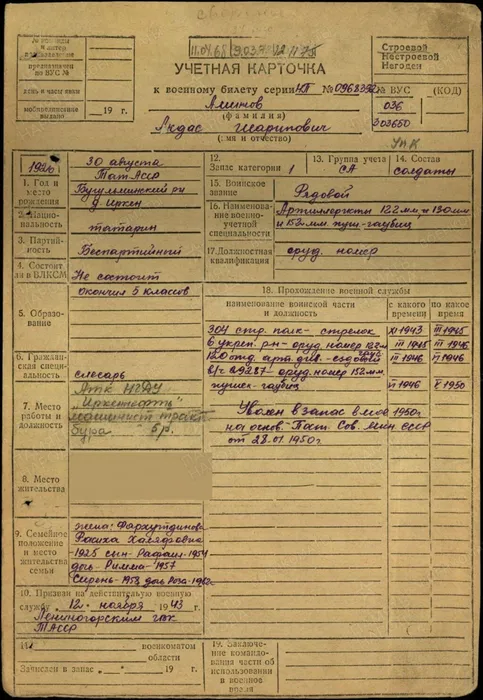 УЧЕТНАЯ КАРТОЧКА
к военному билету серии НП № 0968392
Строевой
Нестроевой
Негоден
№ ВУС (КОД)
036
303650
Аминов
(фамилия)
Акдас Шарипович
(имя и отчество)
№ команды
предназначен
по ВУС №
день и часы явки
мобпредписание
выдано 19 г.
1926 30 августа
1. Год и
место
рождения
ТатАССР
Бугульминский рн
д. Иркен
2. Национальность
татарин
3. Партийность
Беспартийный
4. Состоит
ли в ВЛКСМ
Не состоит
5. Образование
окончил 5 классов
6. Гражданская
специальность
слесарь
7. Место
работы и
должность
НГДУ
"Иркеннефть"
машинист
бура 5р.
8. Место
жительства
9. Семейное
положение
и место
жительства
семьи
жена: Фархутдинова
1925 сын-Рафаил-1954
дочь-Римма-1957
Сирень-1958 дочь Роза-1962
10. Призван на действительную военную
службу „12" ноября 1943 г.
Лениногорским гвк
ТАССР
11. военкоматом
области
Зачислен в запас „ " 19 г.
12.
Запас категории 1
13. Группа учета
СА
14. Состав
солдаты
15. Воинское звание
Рядовой
16. Наименование
военно-
учетной
специальности
Артиллеристы 122мм и 130мм
и 152мм пуш-гаубиц
17. Должностная
квалификация
оруд. номер
18. Прохождение военной службы
наименование воинской части
и должность
с какого
времени
по какое
время
304 стр. полк - стрелок XI 1943 III 1945
6 укреп. р-н - оруд. номер 122м III 1945 II 1946
120 отд. арт. див. - ездовой II 1946 VI 1946
в/ч 29287 - оруд. номер 152мм.
пушек-гаубиц VI 1946 X 1950
Уволен в запас 1950г
на основ. Пост. Сов. Мин. СССР
от 28.01.1950г
19. Заключение
командования
части об
использовании
в военное
время